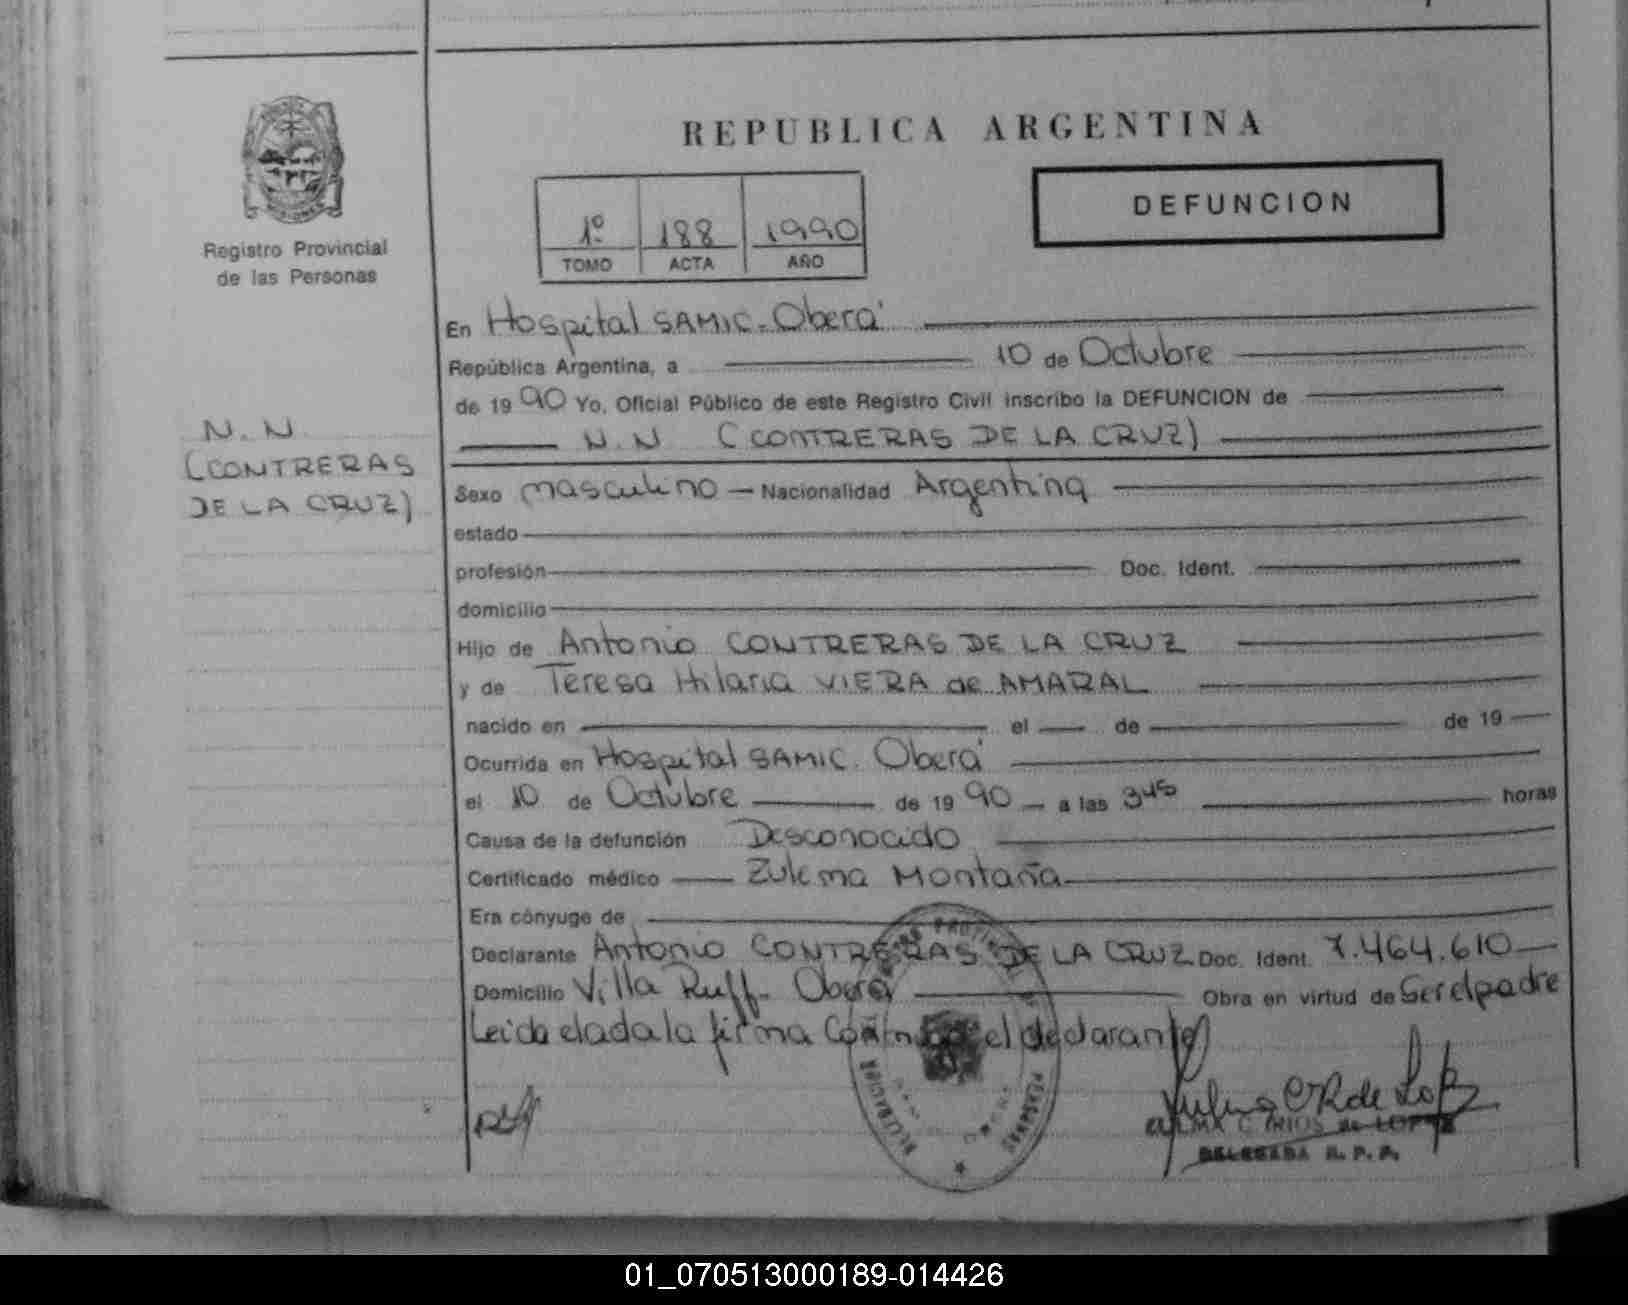 REPUBLICA ARGENTINA
DEFUNCION
1º 188 1990
TOMO ACTA AÑO
Registro Provincial
de las Personas
N.N.
(CONTRERAS
DE LA CRUZ)
En Hospital SAMIC. Oberá
República Argentina, a 10 de Octubre
de 1990 Yo, Oficial Público de este Registro Civil inscribo la DEFUNCION de
N.N (CONTRERAS DE LA CRUZ)
Sexo masculino — Nacionalidad Argentina
estado
profesión Doc. Ident.
domicilio
Hijo de Antonio CONTRERAS DE LA CRUZ
y de Teresa Hilaria VIERA de AMARAL
nacido en el de de 19
Ocurrida en Hospital SAMIC. Oberá
el 10 de Octubre de 1990 a las 3⁴⁵ horas
Causa de la defunción Desconocido
Certificado médico Zulema Montaña
Era cónyuge de
Declarante Antonio CONTRERAS DE LA CRUZ Doc. Ident. 7.464.610
Domicilio Villa Ruff. Oberá Obra en virtud de Ser el padre
Leida el ada la firma el declarante
DELEGADA R. P. P.
01_070513000189-014426